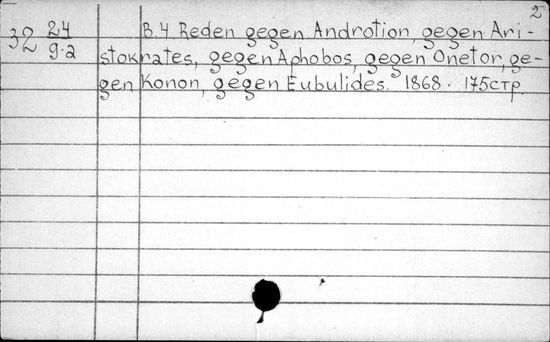 2
32 24/9.2 B.4 Reden gegen Androtion, gegen Ari-
stokrates, gegen Aphobos, gegen Onetor, ge-
gen Konon, gegen Eubulides. 1868. 175стр.